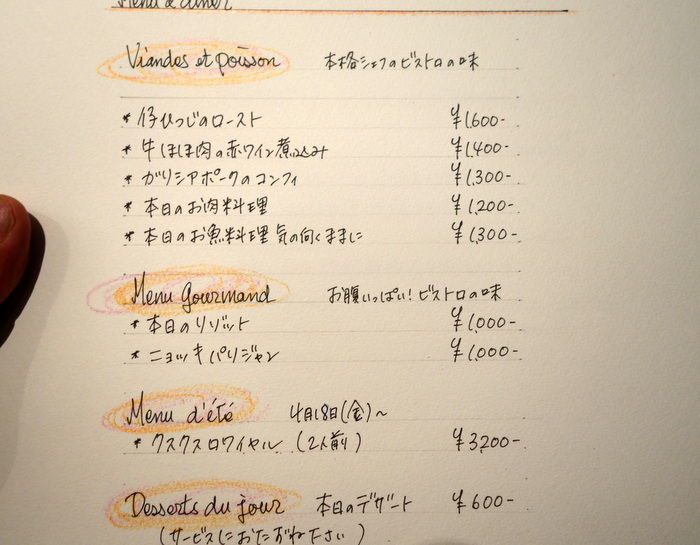 Menu à dîner
Viandes et poisson 本格シェフのビストロの味
* 仔ひつじのロースト ¥1,600-
* 牛ほほ肉の赤ワイン煮込み ¥1,400-
* ガリシアポークのコンフィ ¥1,300-
* 本日のお肉料理 ¥1,200-
* 本日のお魚料理 気の向くままに ¥1,300-
Menu Gourmand お腹いっぱい！ビストロの味
* 本日のリゾット ¥1,000-
* ニョッキパリジャン ¥1,000-
Menu d'été 4月18日(金)~
* クスクスロワイヤル (2人前) ¥3,200-
Desserts du jour 本日のデザート ¥600-
(サービスにおたずね下さい)